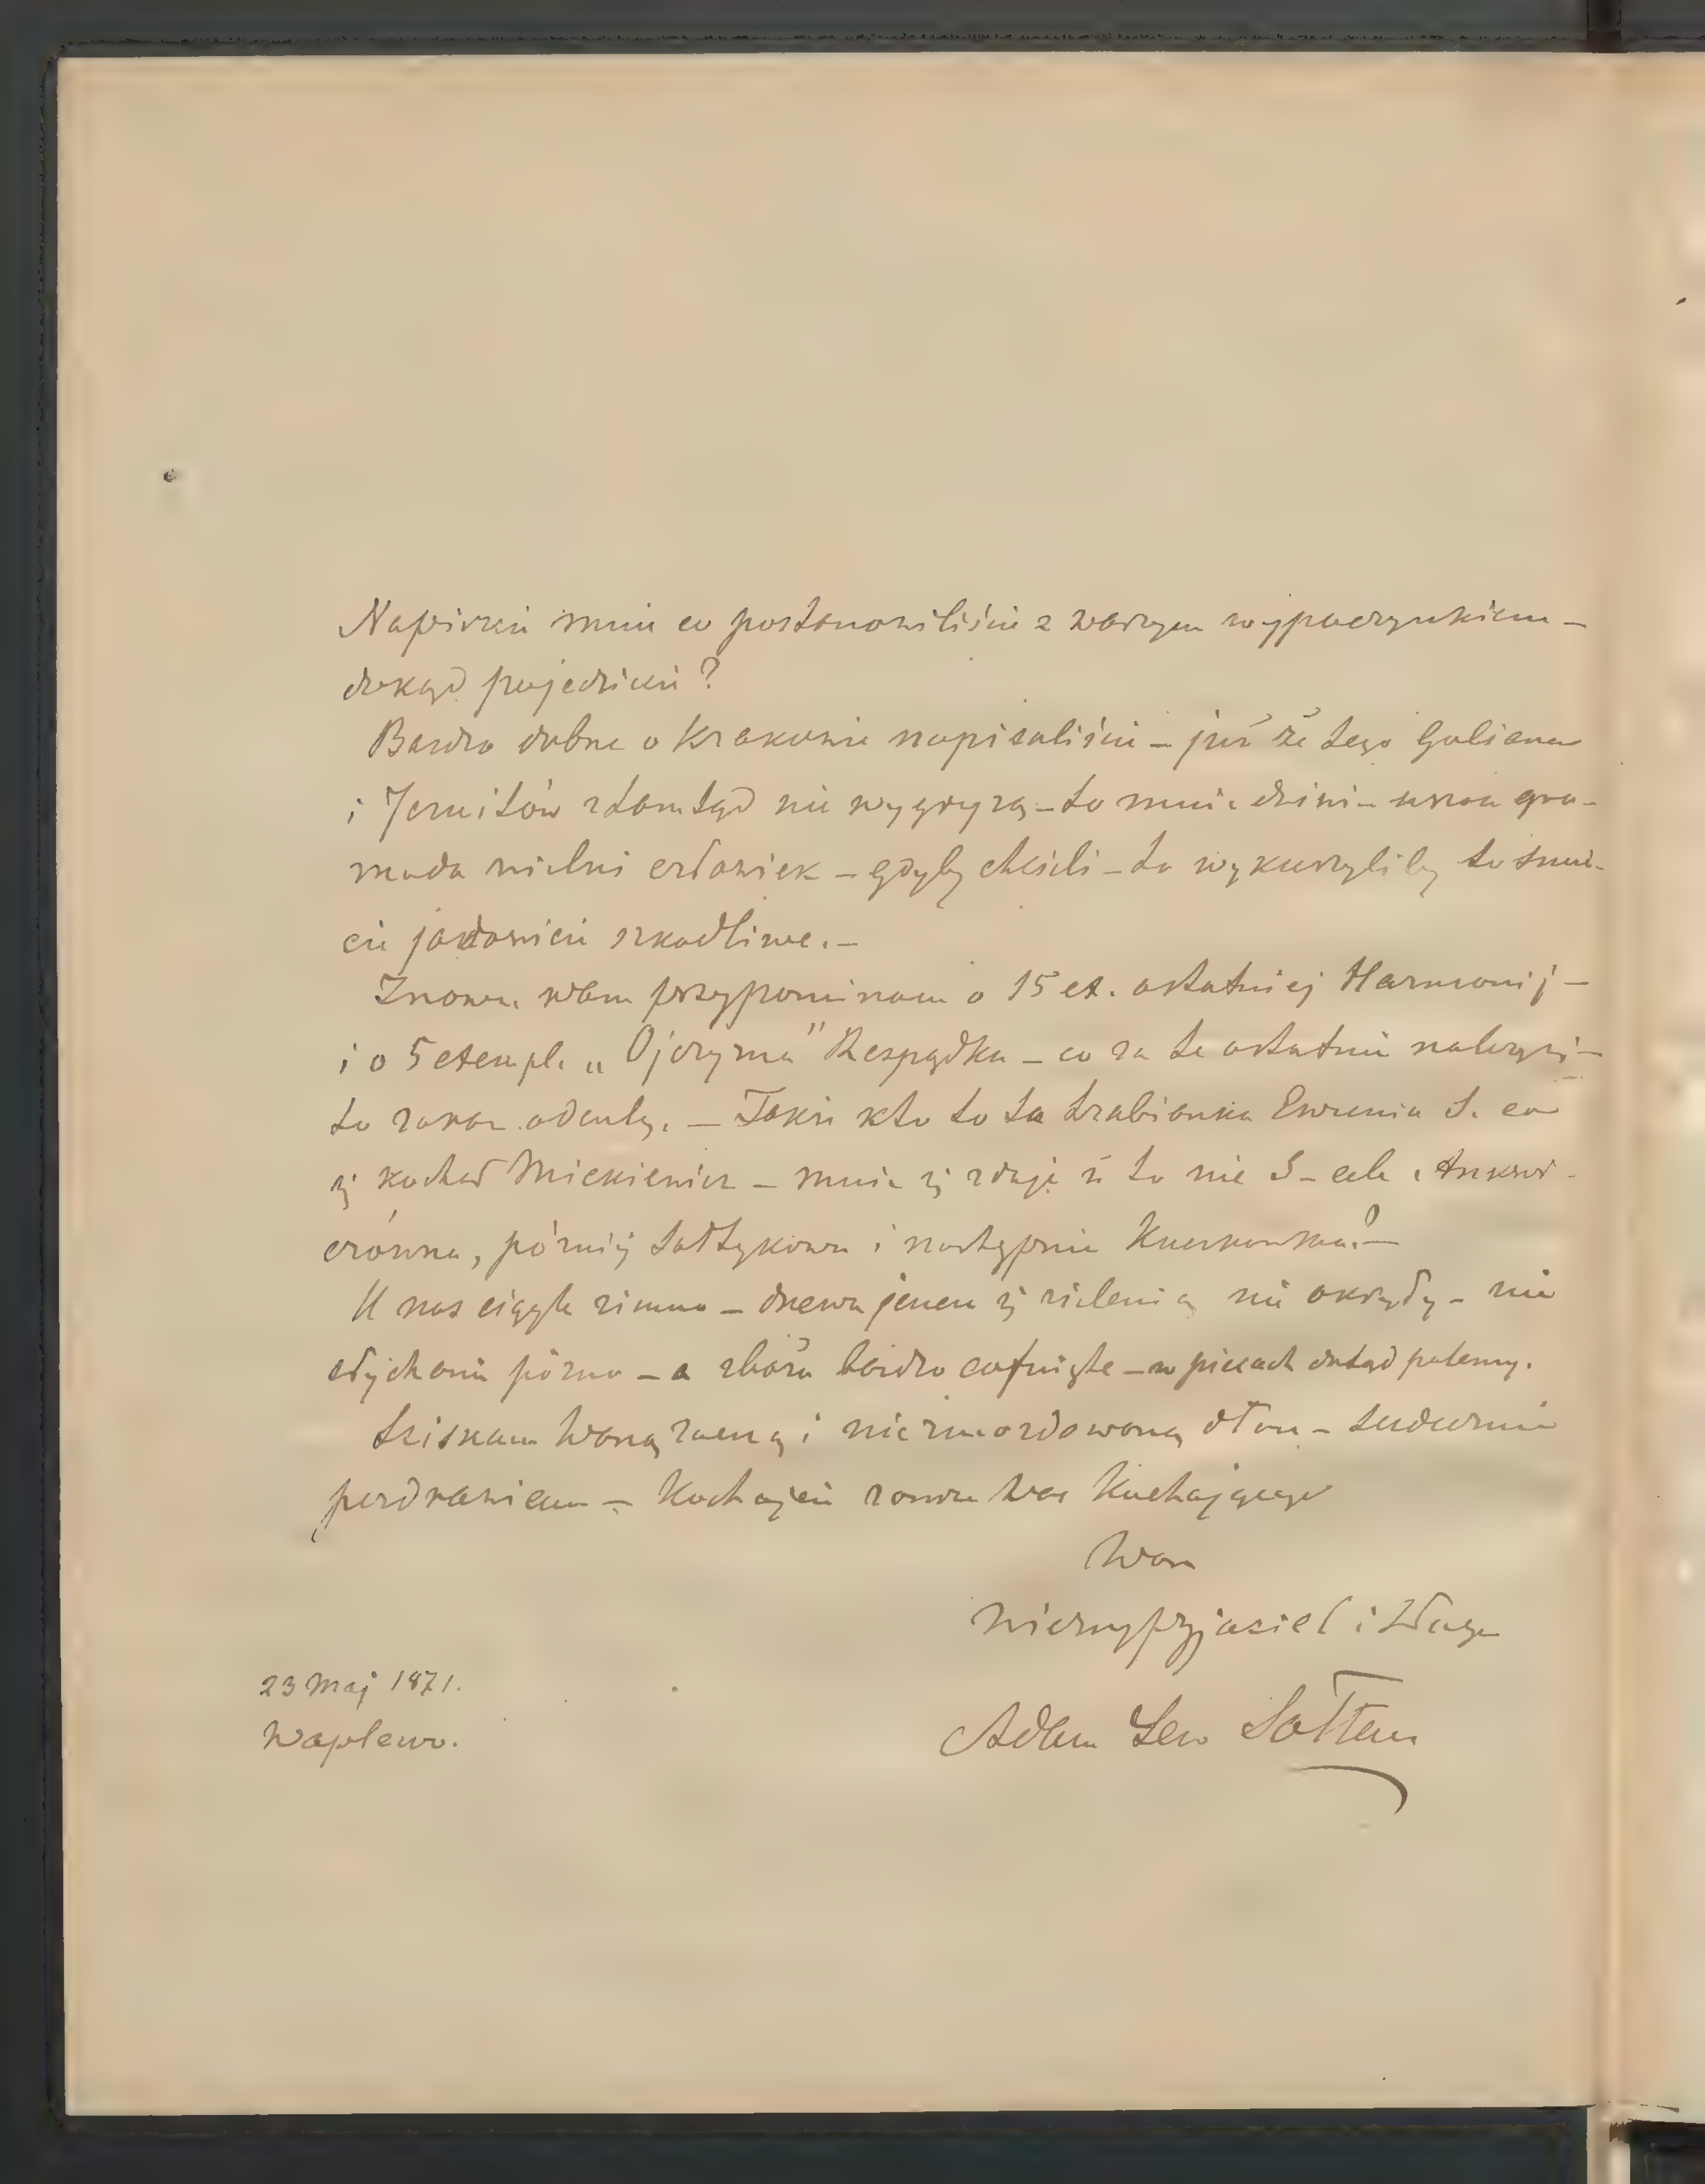 Napiszcie mnie co postanowiliście z waszym wypoczynkiem –
dokąd pojedziecie?
Bardzo dobrze o Krakowie napisaliście – już że tego Goliana
i Jezuitów ztamtąd nie wygryzą – to mnie dziwi – wszak gro-
mada wielki człowiek – gdyby chcieli – to wykurzyliby to śmie-
cie jadowicie szkodliwe. –
Znowu wam przypominam o 15 ex. ostatniej Harmonij –
i o 5 exempl. „Ojczyzna" Rozpądka – co za te ostatnie należy –
to zaraz odeszlę. – Takze kto to ta hrabianka Ewunia S. co
się kochał Mickiewicz – mnie się zdaje iż to nie S – ale Ankwi-
czówna, później Sołtykowa i następnie Kuczkowska? –
U nas ciągle zimno – drzewa jeszcze się zielenią nie okryły – nie
słychanie późno – a zboża bardzo cofnięte – w piecach dotąd palemy.
Sciskam Waszą zacną i niezmordowaną dłoń – serdecznie
pozdrawiam – Kochajcie zawsze Was Kochającego
Wasz
wierny przyjaciel i sługa
Adam Lew Sołtan
23 Maj 1871.
Waplewo.